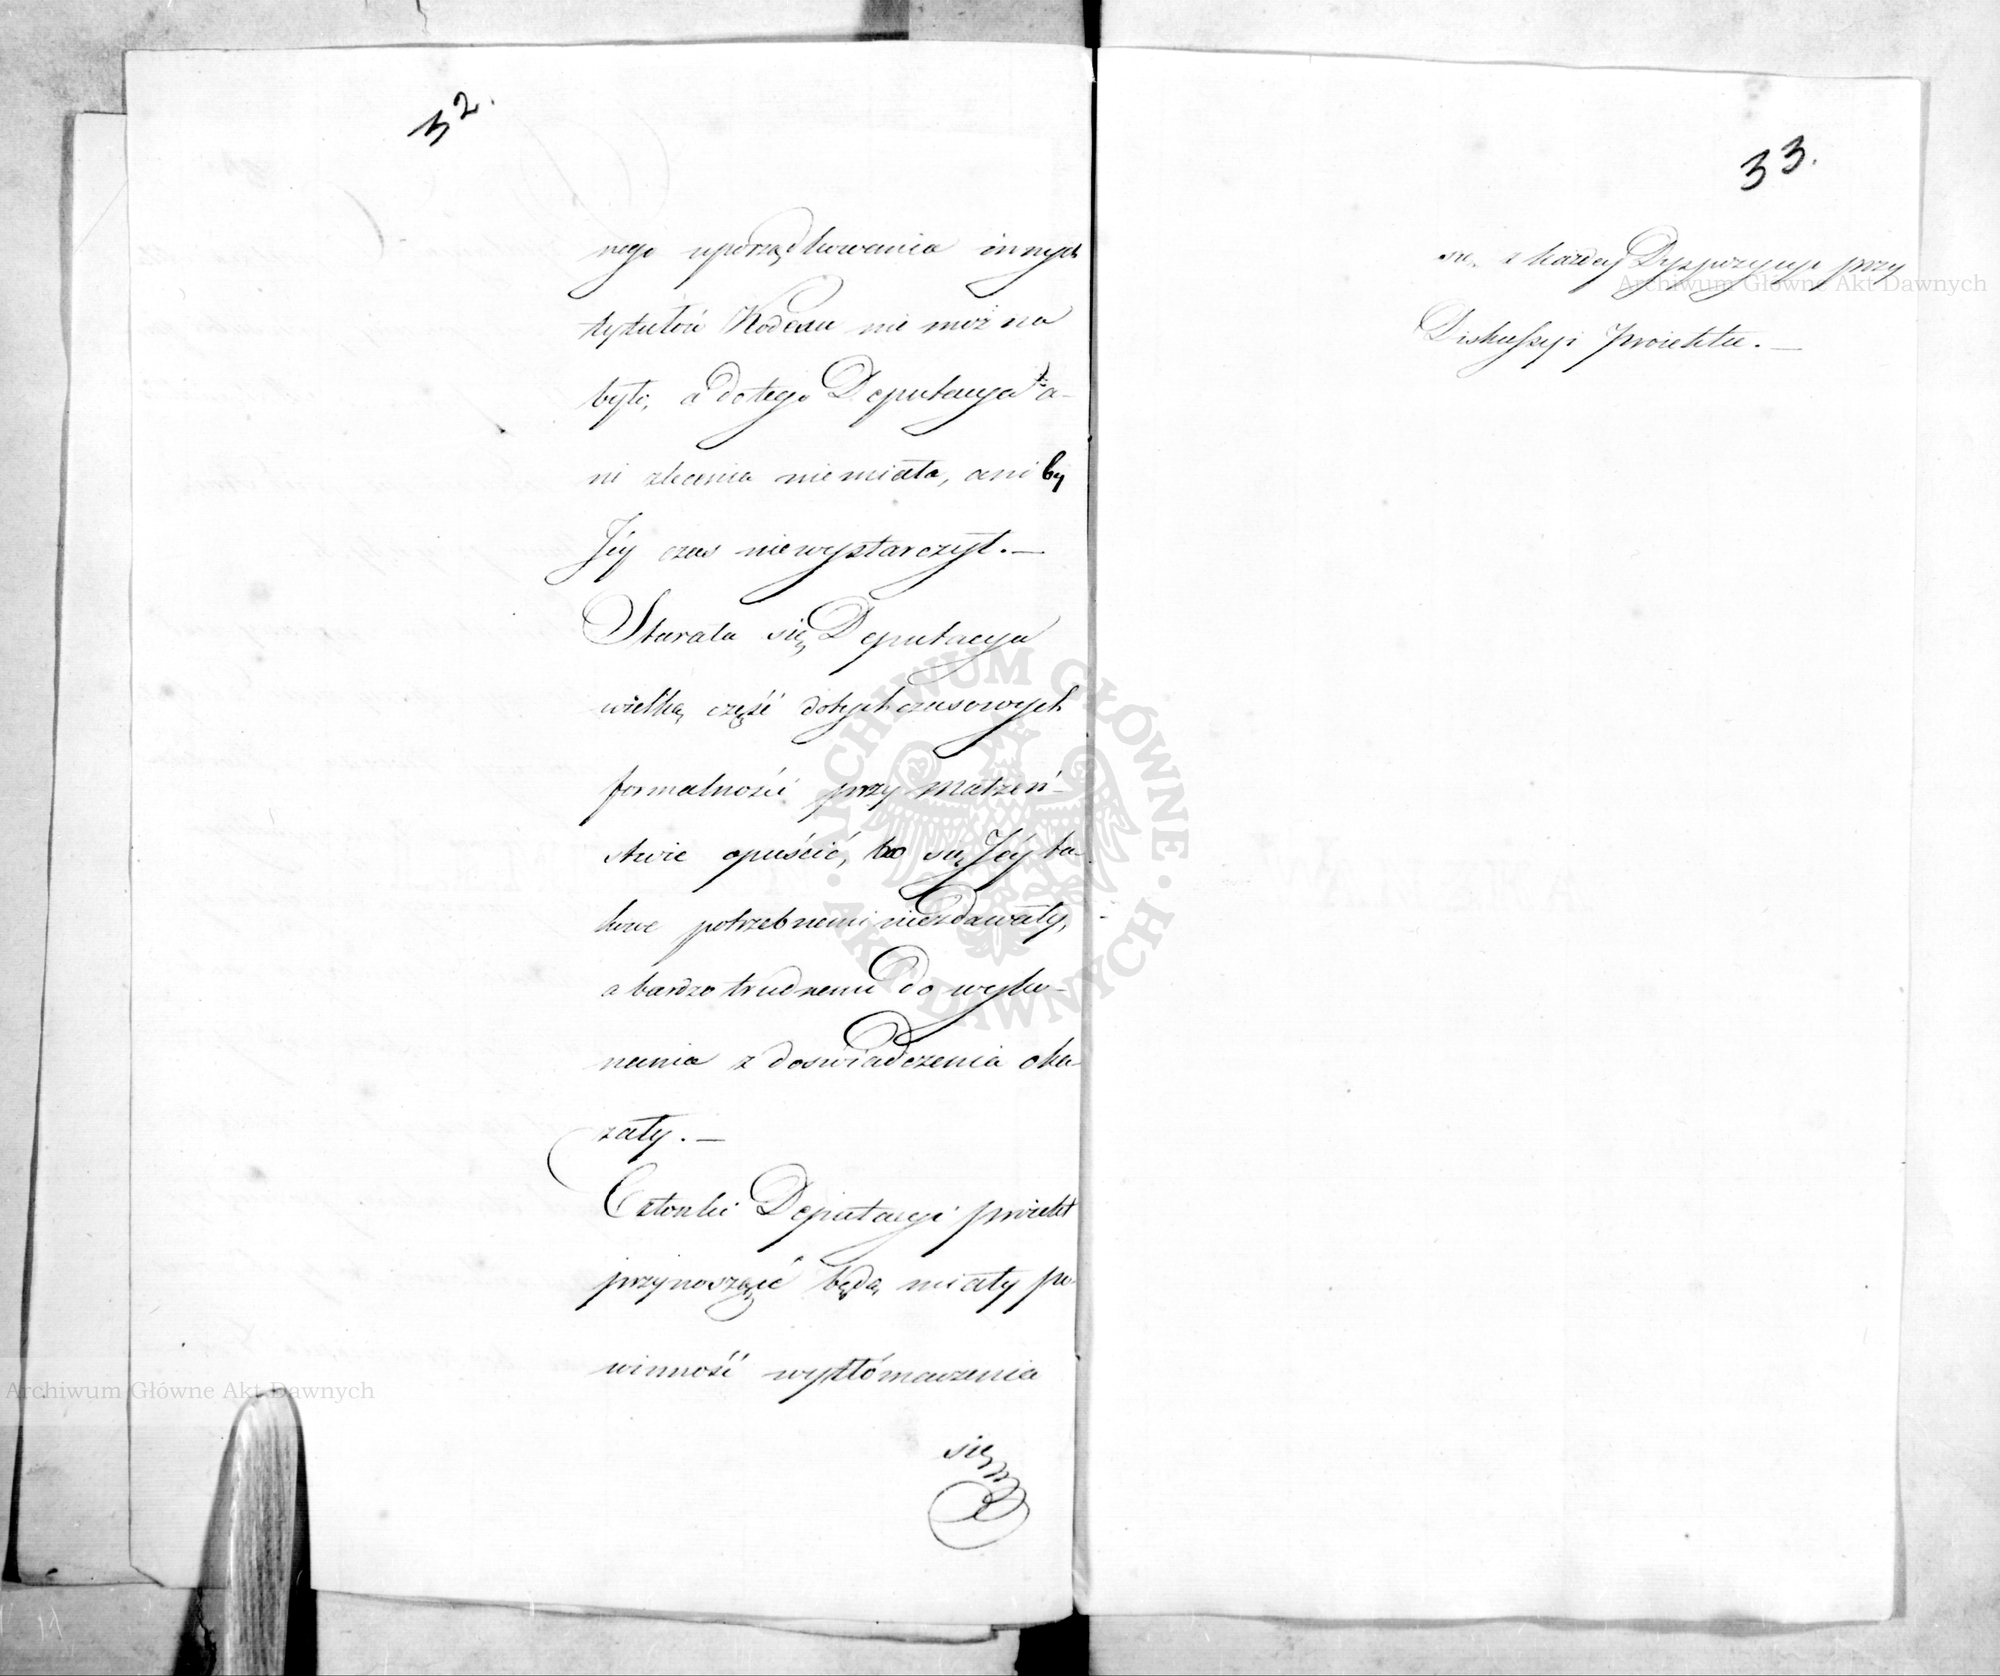 32.
nego uporządkowania innych
tytułów Kodexu nie można
było, a do tego Deputacya a-
ni zlecenia nie miała, ani by
Jéy czas nie wystarczył. —
Starała się Deputacya
wielką część dotychczasowych
formalności przy małżeń-
stwie opuścić, bo się Jéy ta-
kowe potrzebnemi niezdawały,
a bardzo trudnemi do wyko-
nania z doświadczenia oka-
zały. —
Członki Deputacyi proiekt
przynoszące będą miały po-
winność wytłómaczenia
się
33.
się z każdey Dyspozycyi przy
Diskussyi Proiektu. —
ARCHIWUM GŁÓWNE AKT DAWNYCH
Archiwum Główne Akt Dawnych
Archiwum Główne Akt Dawnych